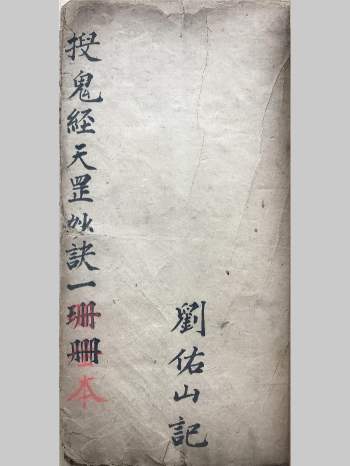 搜鬼経天罡妙訣一珊冊本
劉佑山記